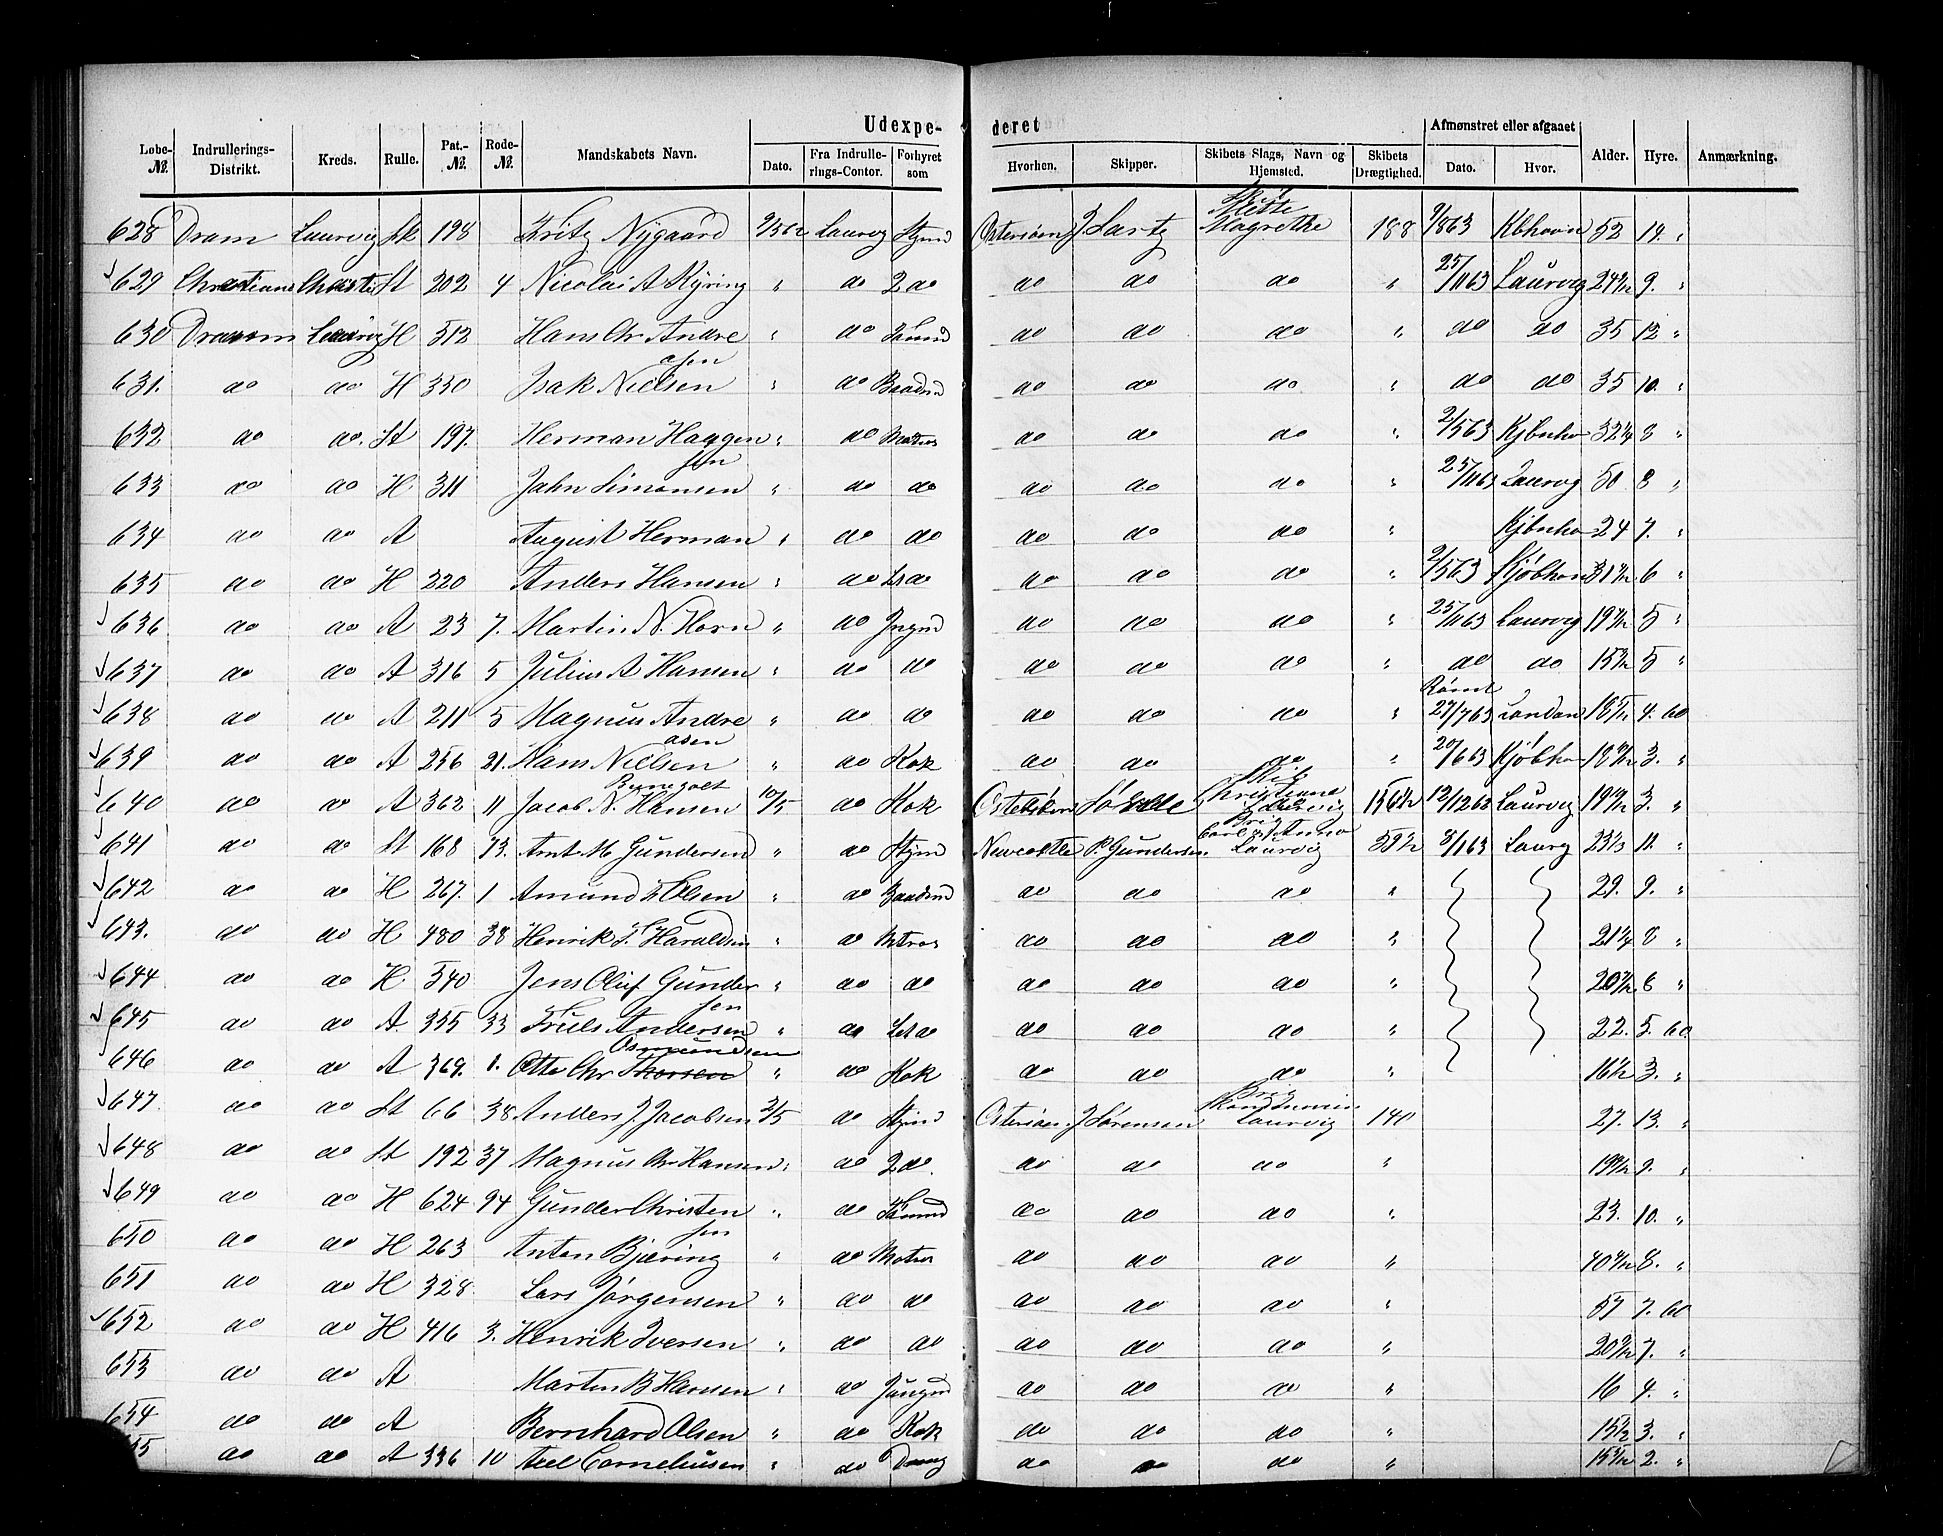 Udexpe- deret
Løbe- № Indrullerings- Distrikt. Kreds. Rulle. Pat.- № Rode- № Mandskabets Navn. Dato. Fra Indrulle- rings-Contor. Forhyret som Hvorhen. Skipper. Skibets Slags, Navn og Hjemsted. Skibets Drægtighed. Afmønstret eller afgaaet Dato. Hvor. Alder. Hyre. Anmærkning.
628 Dram Laurvig Sk 198 Fritz Nygaard Laurvig Stymd Østersøen J Lartz Skib Mette Magrethe 188 Kbhavn 52 14. "
629 Christians Christi St 202 4 Nicolai A Kyring " do 2 do do do do " 25/1163 Laurvig 9. "
630 Dramm Laurvig H 512 Hans Chr Andre asen " do Tømmd do do do " do do 35 12 "
631. do do H 350 Isak Nielsen " do Baadsmd do do do " do do 35 10. "
632 do do. St 197. Herman Haagen sen " do Matros do do do " 2/563 Kjbnha 8 "
633 do do H 311 John Simonsen " do do do do do " 25/1163 Laurvig 50 8 "
634 do do A August Herman " do do do do do " Kjbnha 24 7. "
635 do do H 220 Anders Hansen " do do do do " 2/563 Kjøbhavn 6 "
636 do do A 23 7. Martin N. Horn " do Jngmd do do do " 25/1163 Laurvig 5 "
637 do do A 316 5 Julius A Hansen " do do do do do " do do 5 "
638 do do A 211 5 Magnus Andre asen " do do do do do " Rømt 27/763 London 4. 60
639 do do A 256 21. Hans Nielsen " do Kok do do do " 20/663 Kjøbha 3. "
640 do do A 362 11 Jacob N. Hansen 10/5 do Kok Skib Christiane Laurvig 156½ 12/1262 Laurvig 3. "
641 do do St 168 73. Amt M Gundersen " do Stymd Newcastle P. Gundersen Brig Carl & Anna Laurvig 59½ 8/163 Laurg 11. "
642 do do H 267. 1 Amund L Olsen " do Baadsmd do do do " 29. 9. "
643. do do H 480 38 Henrik J. Haraldsen " do Mtros do do do " 21¼ 8 "
644 do do H 540 Jens Oluf Gunder sen " do do do do do " 6 "
645 do do A. 355 33 Truls Andersen " do Ltdo do do do " 22. 5. 60
646 do do A 369. 1. Otto Chr Thorsen Osmundsen " do Kok do do do " 16½ 3. "
647. do do St 66 38 Anders J Jacobsen 2/5 do Stymd Østersøen J Sørensen Brig Skandinavien Laurvig 140 27. 13. "
648 do do St 192 37 Magnus Chr Hansen " do 2 do. do do do " 9. "
649 do do H 624 94 Gunder Christen sen " do Tømmd do do do " 23. 10. "
650 do do H 263 Anton Bjæring " do Matros do do do " 8. "
651 do do H 328 Lars Jørgensen " do do do do do " 57 7. 60
652 do do H 416 3. Henrik Iversen " do do do do do " 7. "
653 do do A Martin B Hansen " do Jungmd do do do " 16 4. "
654 do do A Bernhard Olsen " do Kok do do do " 15½ 3. "
55 do do A 336 10 Axel Corneliusen " do Dreng do do do " 2. "